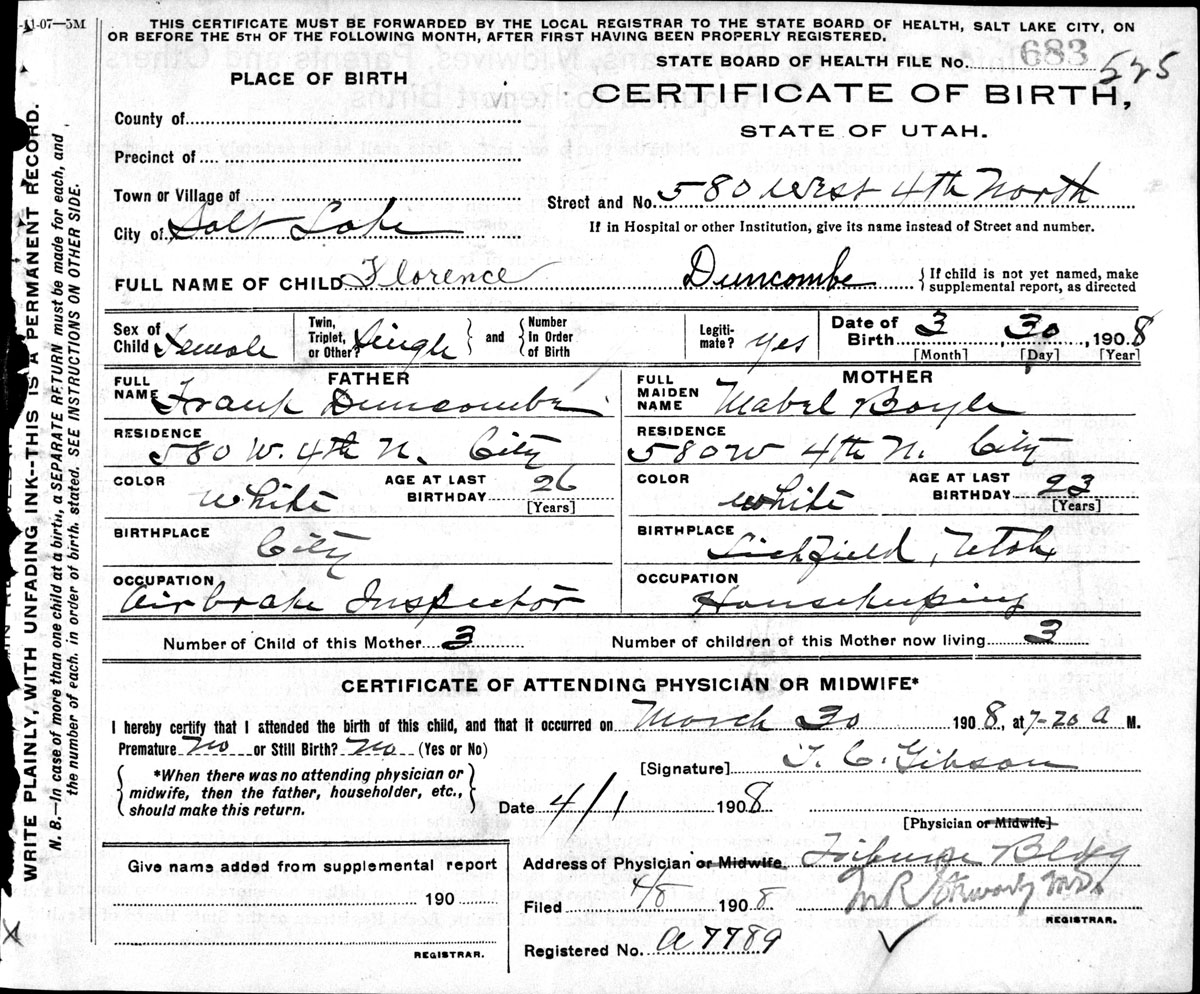 -11-07—5M
THIS CERTIFICATE MUST BE FORWARDED BY THE LOCAL REGISTRAR TO THE STATE BOARD OF HEALTH, SALT LAKE CITY, ON
OR BEFORE THE 5TH OF THE FOLLOWING MONTH, AFTER FIRST HAVING BEEN PROPERLY REGISTERED.
STATE BOARD OF HEALTH FILE No. 683 525
PLACE OF BIRTH
CERTIFICATE OF BIRTH,
STATE OF UTAH.
County of
Precinct of
Town or Village of
Street and No. 580 West 4th North
City of Salt Lake
If in Hospital or other Institution, give its name instead of Street and number.
FULL NAME OF CHILD Florence Duncombe { If child is not yet named, make
supplemental report, as directed
Sex of Child Female
Twin, Triplet, or Other? Single } and { Number In Order of Birth
Legiti-mate? Yes
Date of Birth 3, 30, 1908
[Month] [Day] [Year]
FATHER
FULL NAME Frank Duncombe
RESIDENCE
580 W. 4th N. City
COLOR White AGE AT LAST BIRTHDAY 26
[Years]
BIRTHPLACE
City
OCCUPATION
Airbrake Inspector
MOTHER
FULL MAIDEN NAME Mabel Boyle
RESIDENCE
580 W 4th N. City
COLOR White AGE AT LAST BIRTHDAY 23
[Years]
BIRTHPLACE
Utah
OCCUPATION
Housekeeping
Number of Child of this Mother 3 Number of children of this Mother now living 3
CERTIFICATE OF ATTENDING PHYSICIAN OR MIDWIFE*
I hereby certify that I attended the birth of this child, and that it occurred on March 30 1908, at 7-20 a M.
Premature No or Still Birth? No (Yes or No)
{ *When there was no attending physician or
midwife, then the father, householder, etc.,
should make this return. }
[Signature] T. C. Gibson
Date 4/1 1908
[Physician or Midwife]
Give name added from supplemental report
190
REGISTRAR.
Address of Physician or Midwife Tribune Bldg
Filed 4/8 1908
REGISTRAR.
Registered No. a 7789
WRITE PLAINLY, WITH UNFADING INK--THIS IS A PERMANENT RECORD.
N. B.—In case of more than one child at a birth, a SEPARATE RETURN must be made for each, and
the number of each. in order of birth. stated. SEE INSTRUCTIONS ON OTHER SIDE.